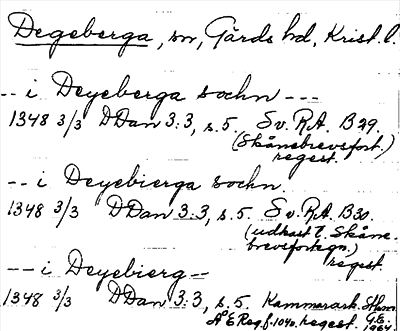 Degeberga, sn, Gärds hd, Krist. l.
-- i Deyeberga sochn ---
1348 3/3 DDan 3:3, s. 5. Sv. RA. B 29.
(Skånebrevsfört.)
regest.
-- i Deyebierga sochn.
1348 3/3 DDan 3:3, s. 5. Sv. RA. B 30.
(udkast t. Skåne-
brevsfortegn.)
regest.
-- i Deyebierg --
1348 3/3 DDan 3:3, s. 5. Kammarark. Sthlm
Ä E Reg. f. 104v. regest. G.E.
1964